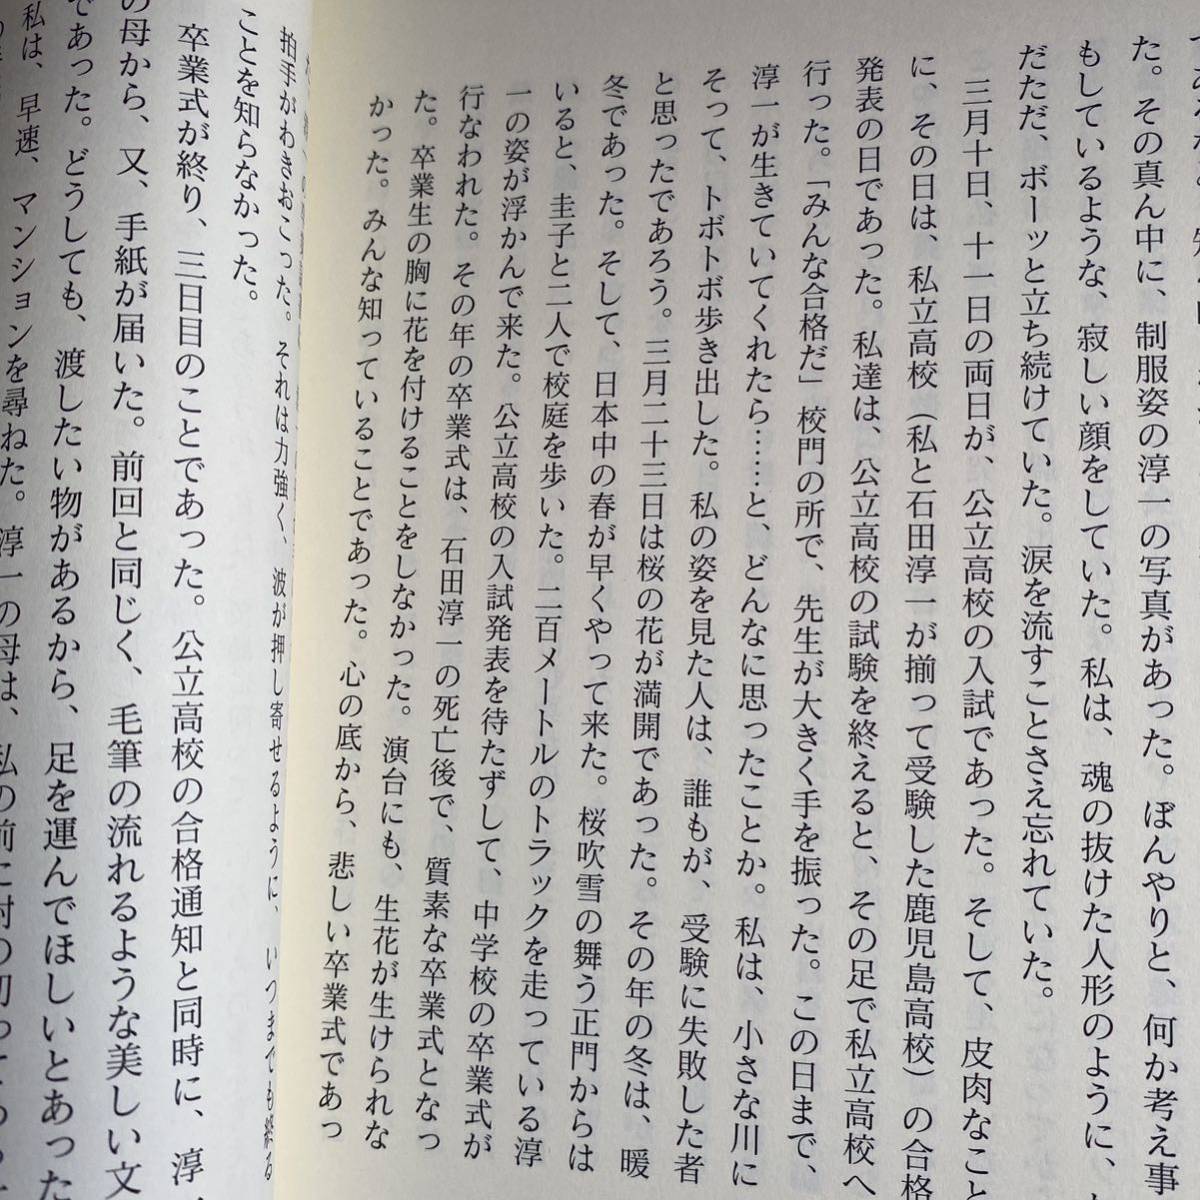 た。その真ん中に、制服姿の淳一の写真があった。ぼんやりと、何か考え事
もしているような、寂しい顔をしていた。私は、魂の抜けた人形のように、
だただ、ボーッと立ち続けていた。涙を流すことさえ忘れていた。
三月十日、十一日の両日が、公立高校の入試であった。そして、皮肉なこと
に、その日は、私立高校（私と石田淳一が揃って受験した鹿児島高校）の合格
発表の日であった。私達は、公立高校の試験を終えると、その足で私立高校へ
行った。「みんな合格だ」校門の所で、先生が大きく手を振った。この日まで、
淳一が生きていてくれたら……と、どんなに思ったことか。私は、小さな川に
そって、トボトボ歩き出した。私の姿を見た人は、誰もが、受験に失敗した者
と思ったであろう。三月二十三日は桜の花が満開であった。その年の冬は、暖
冬であった。そして、日本中の春が早くやって来た。桜吹雪の舞う正門からは
いると、圭子と二人で校庭を歩いた。二百メートルのトラックを走っている淳
一の姿が浮かんで来た。公立高校の入試発表を待たずして、中学校の卒業式が
行なわれた。その年の卒業式は、石田淳一の死亡後で、質素な卒業式となっ
た。卒業生の胸に花を付けることをしなかった。演台にも、生花が生けられな
かった。みんな知っていることであった。心の底から、悲しい卒業式であっ
拍手がわきおこった。それは力強く、波が押し寄せるように、いつまでも終る
ことを知らなかった。
卒業式が終り、三日目のことであった。公立高校の合格通知と同時に、淳
の母から、又、手紙が届いた。前回と同じく、毛筆の流れるような美しい文
であった。どうしても、渡したい物があるから、足を運んでほしいとあった
私は、早速、マンションを尋ねた。淳一の母は、私の前に封の切ってあ